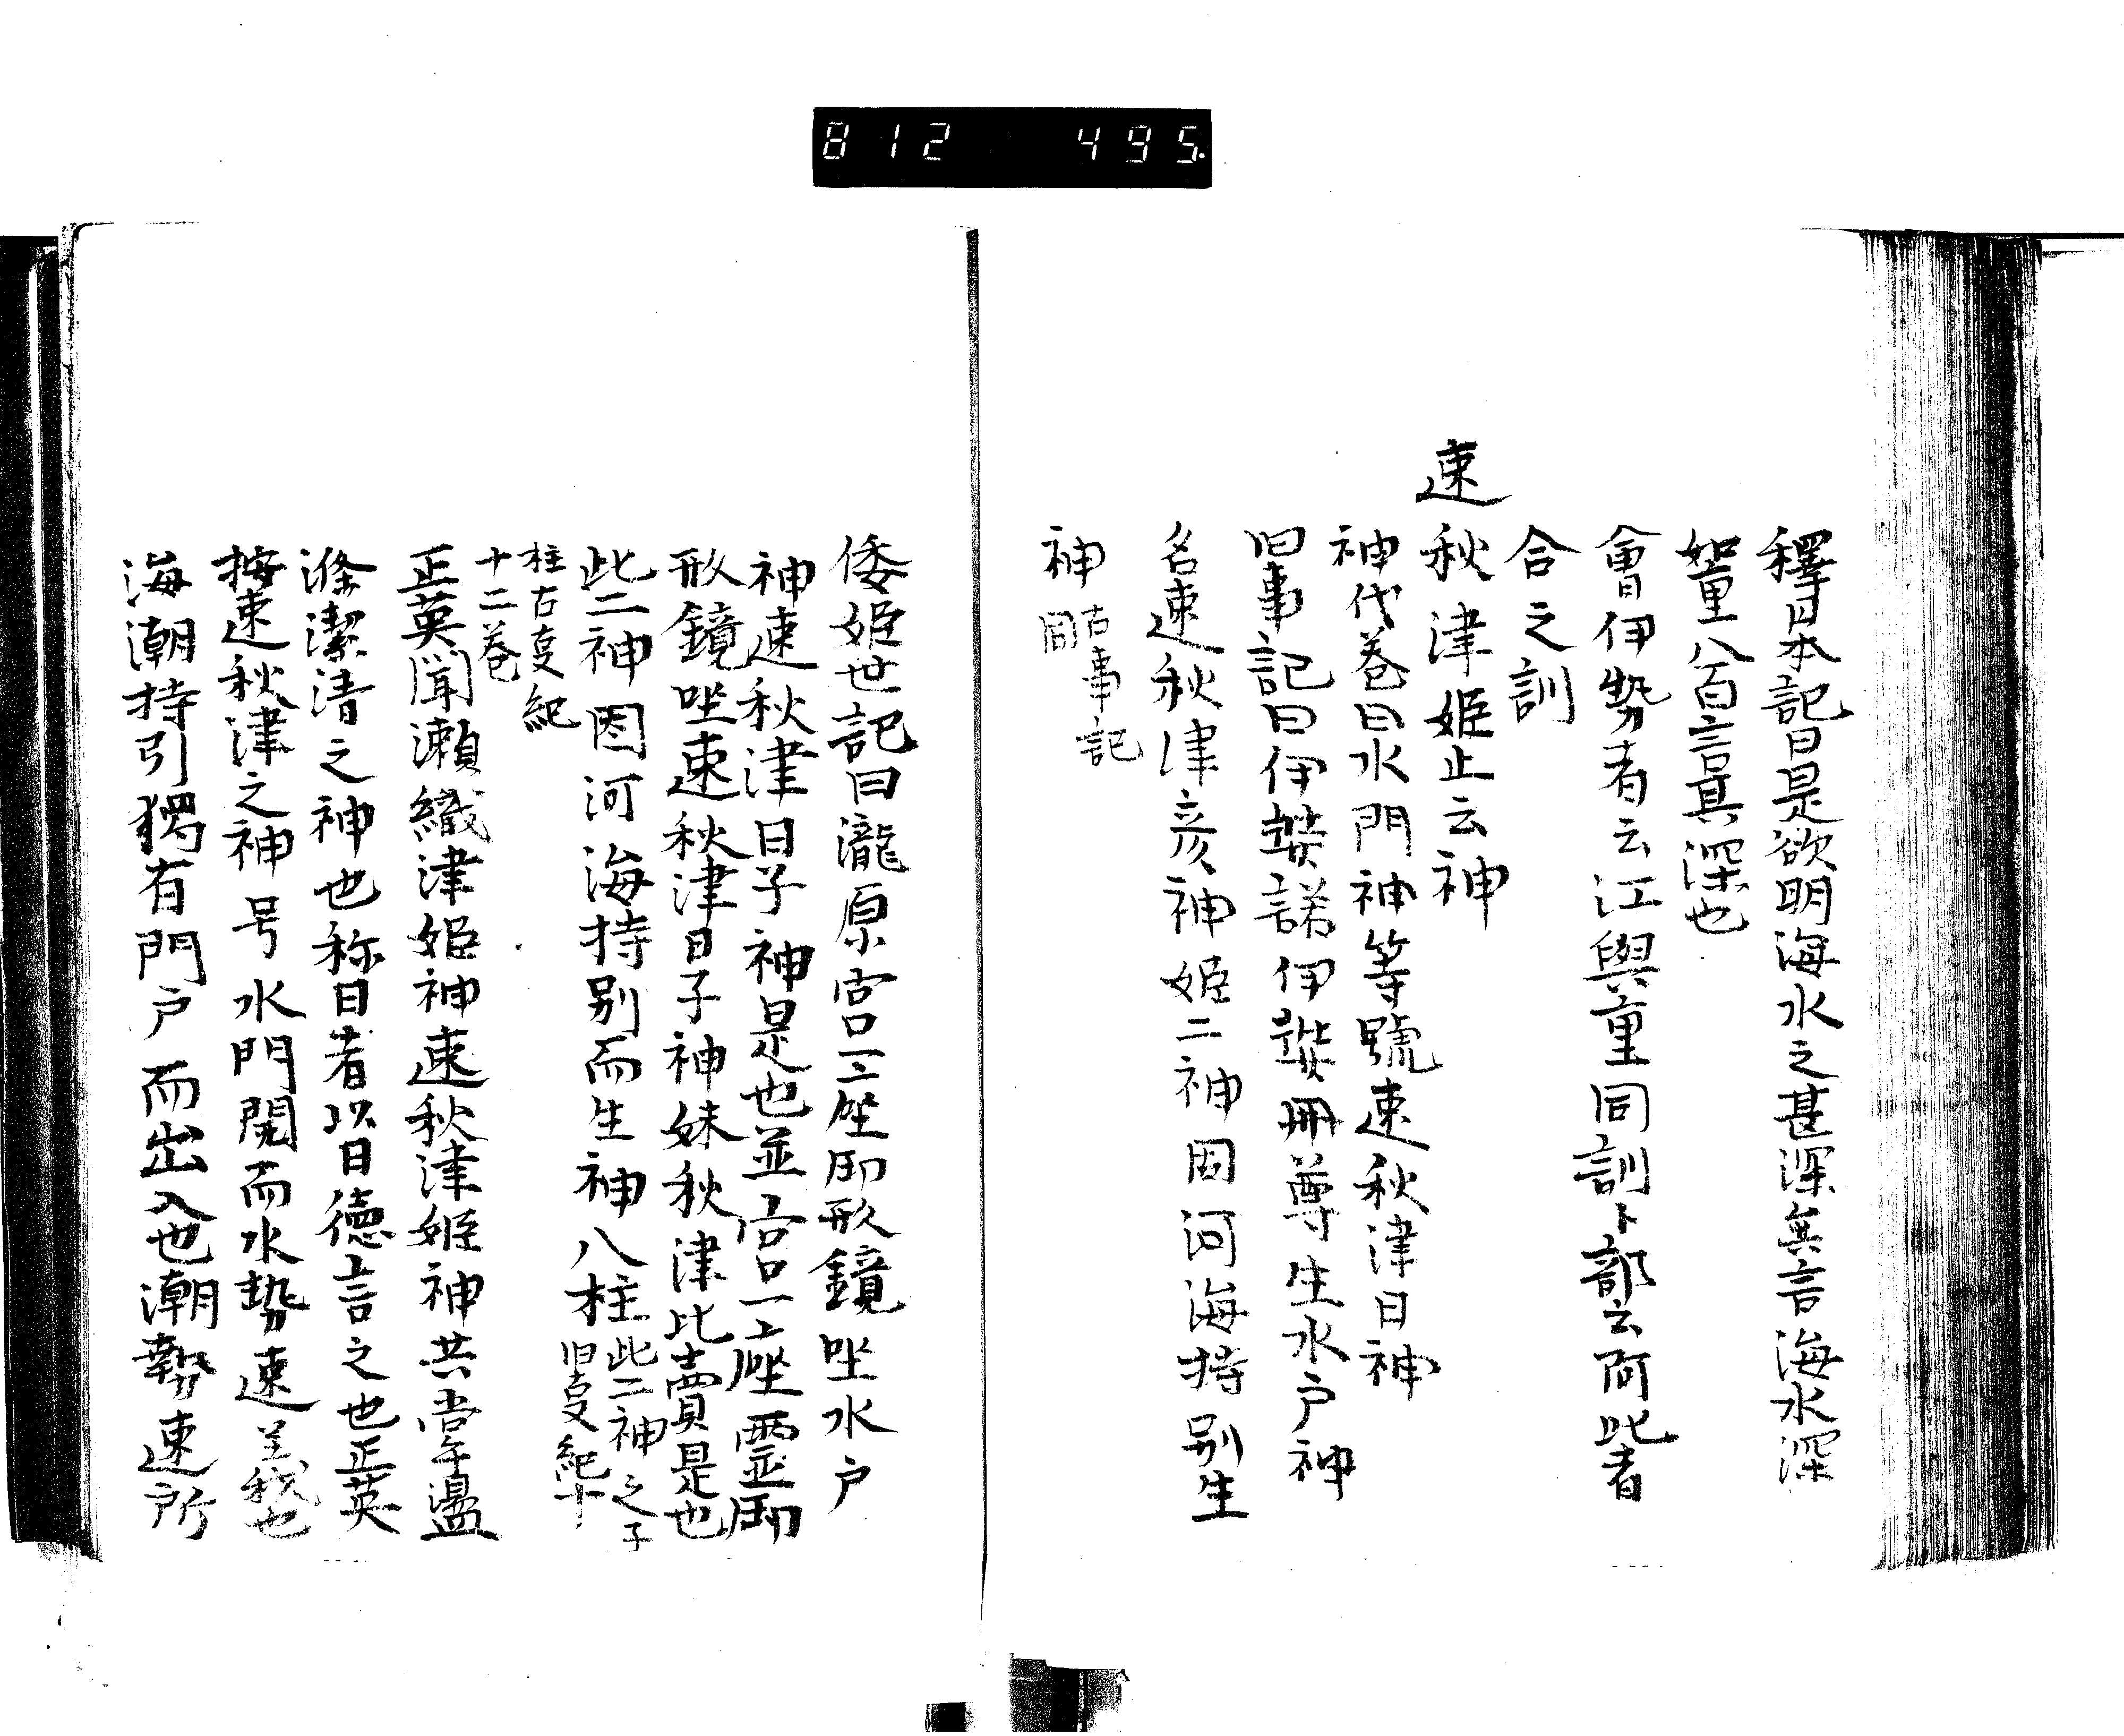 812 495
釋日本記曰是欲明海水之甚深矣言海水深
如重八百言其深也
會伊勢者云江與重同訓卜部云阿此者
合之訓
速秋津姫止云神
神代巻曰水門神等號速秋津日神
旧事記曰伊弉諾伊弉冊尊生水戸神
名速秋津彦神姫二神因河海持別生
神
古事記
同
倭姫世記曰瀧原宮一座即形鏡坐水戸
神速秋津日子神是也並宮一座霊即
形鏡坐速秋津日子神妹秋津比賣是也
此二神因河海持別而生神八柱
此二神之子
旧叓紀十
柱古叓紀
十二巻
正英聞瀬織津姫神速秋津姫神共當盪
滌潔清之神也称日者以日徳言之也正英
按速秋津之神号水門開而水勢速義也
海潮持引獨有門戸而出入也潮勢速所